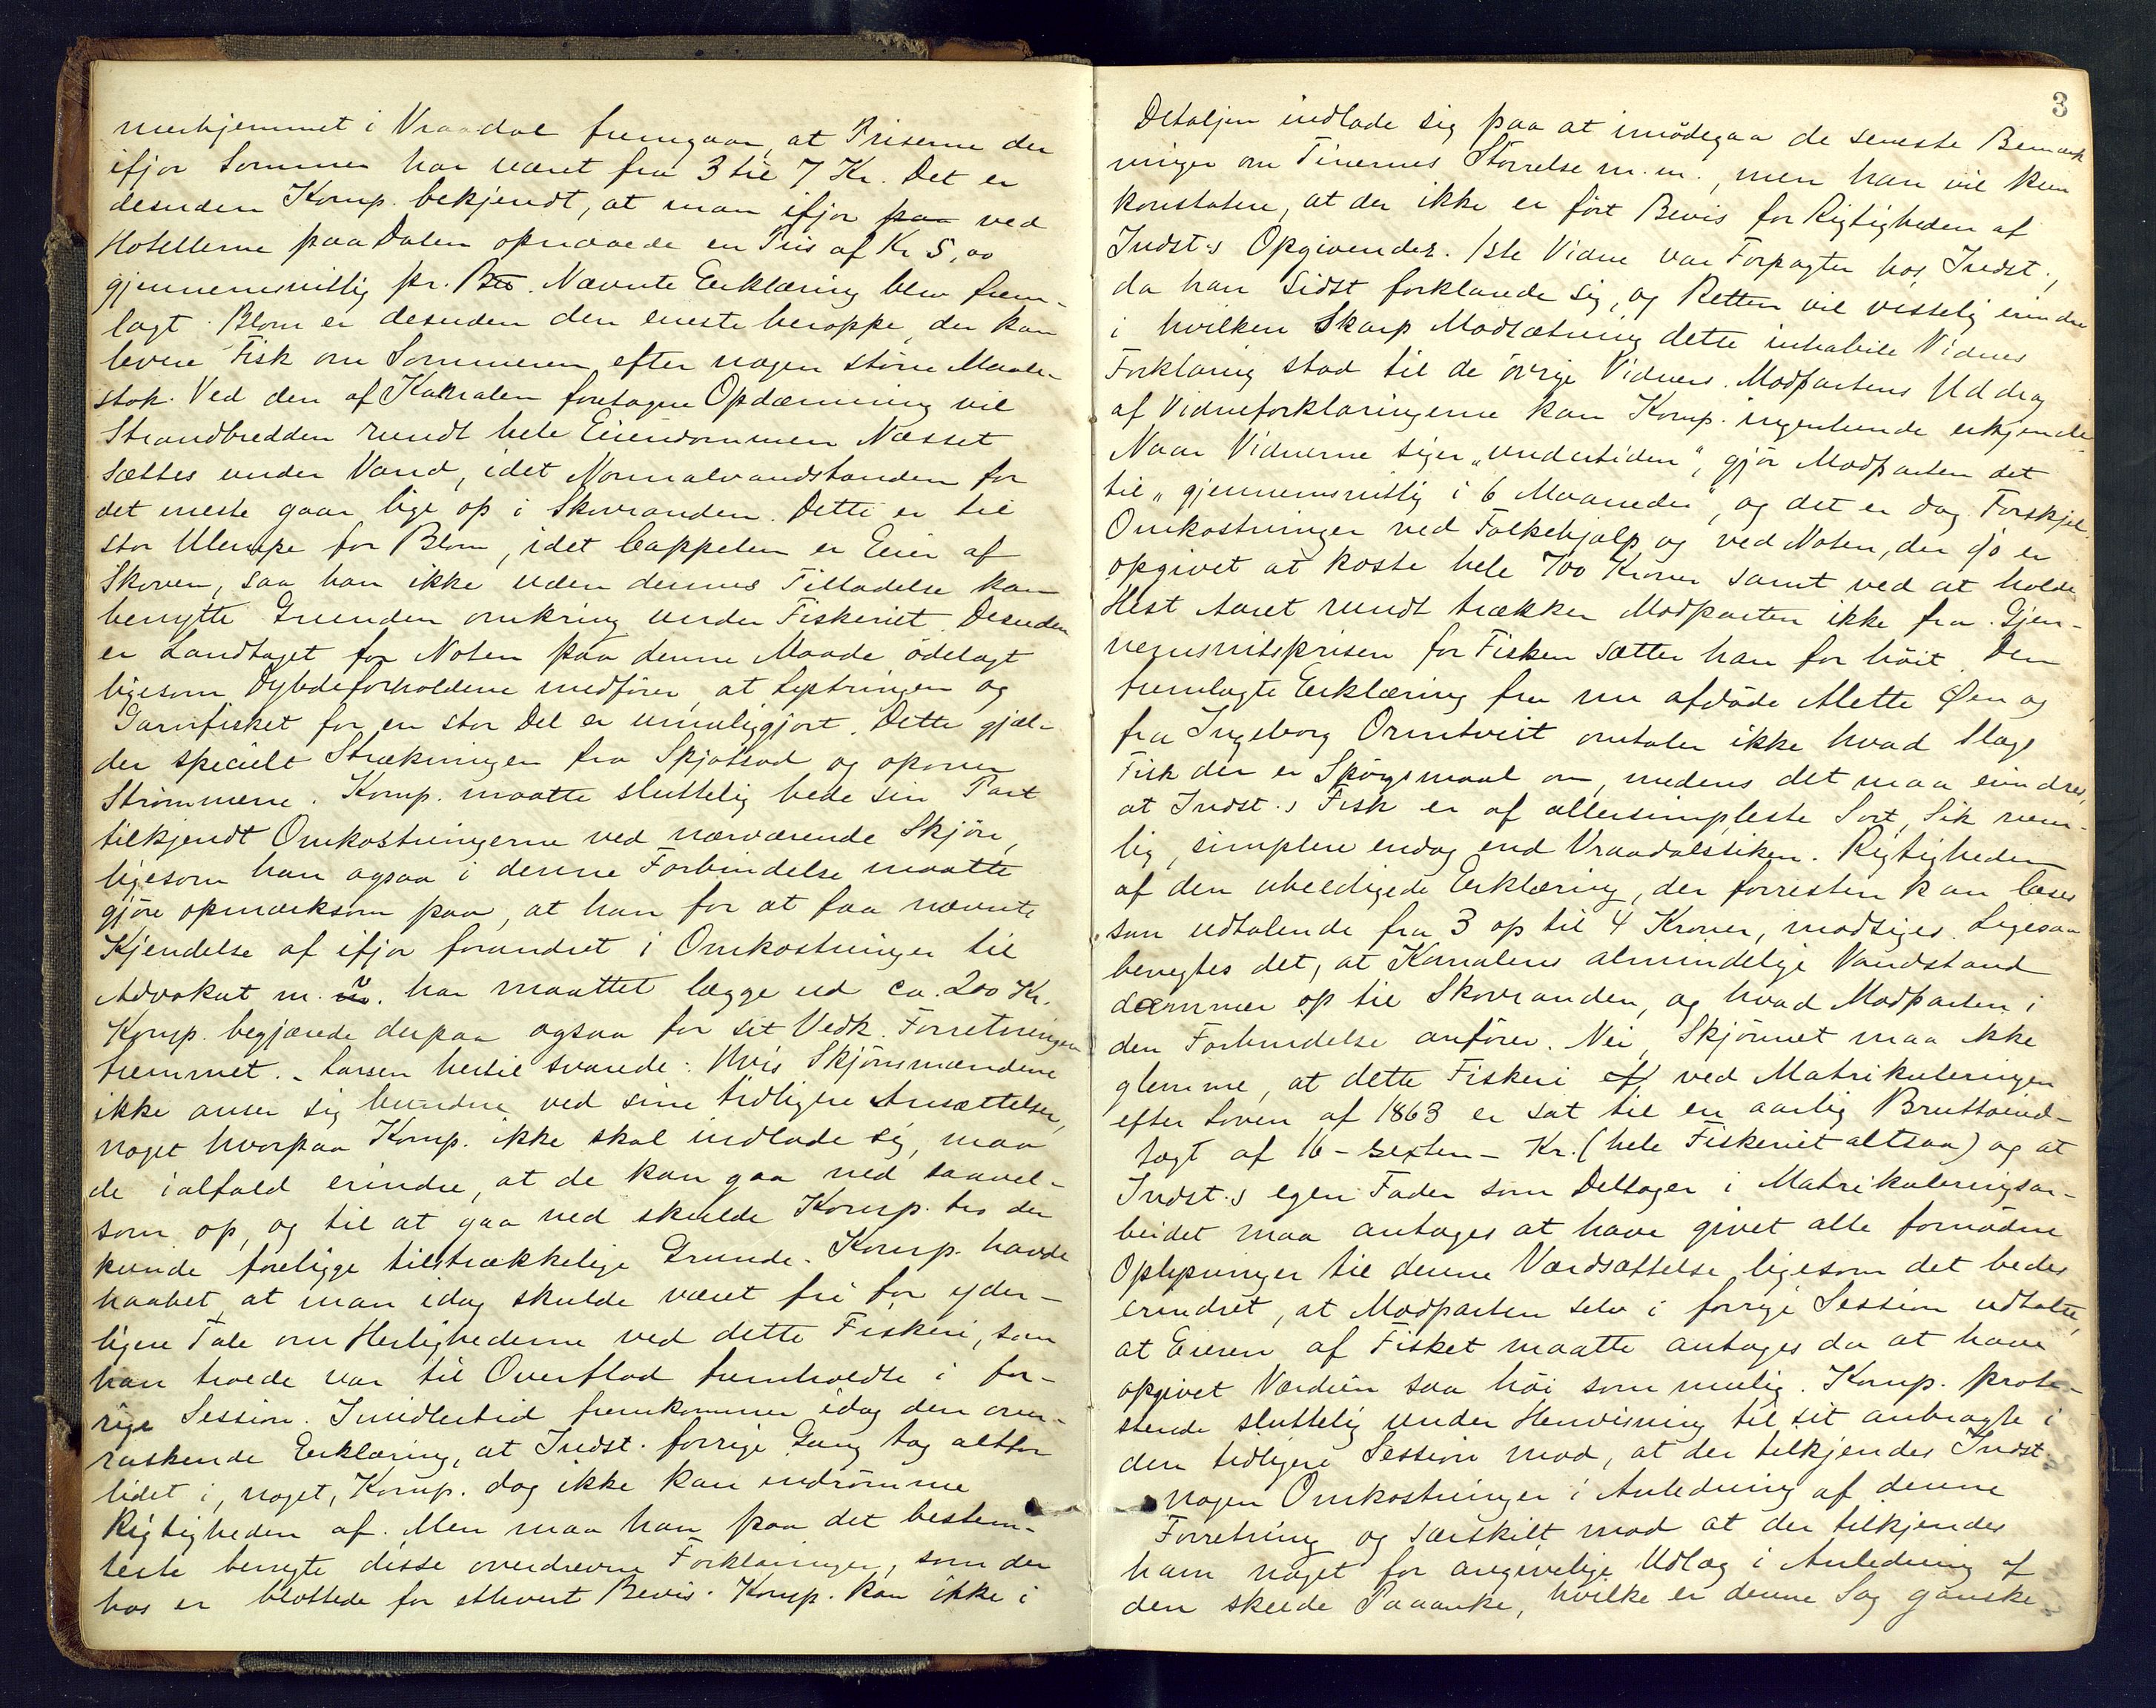 merhjemmet i Vraadal fremgaar, at Priserne der
ifjor Sommer har været fra 3 til 7 Kr. Det er
desuden Komp. bekjendt, at man ifjor paa ved
Hotellerne paa Dalen opnaaede en Pris af Kr 5,00
gjennemsnitlig pr. Btt. Nævnte Erklæring blev frem-
lagt. Blom er desuden den eneste heroppe, der kan
levere Fisk om Sommeren efter nogen større Maale-
stok. Ved den af Kanalen foretagne Opdæmning vil
Strandbredden rundt hele Eiendommen Næsset
sættes under Vand, idet Normalvandstanden for
det meste gaar lige op i Skovranden. Dette er til
stor Ulempe for Blom, idet Cappelen er Eier af
Skoven, saa han ikke uden dennes Tilladelse kan
benytte Grunden omkring under Fiskeriet. Desuden
er Landtaget for Noten paa denne Maade ödelagt
ligesom Dybdeforholdene medförer, at Lystringen og
Garnfisket for en stor Del er umuliggjort. Dette gjæl-
der specielt Strækningen fra Spjotsod og opover
Strömmene. Komp. maatte sluttelig bede sin Part
tilkjendt Omkostningerne ved nærværende Skjön,
ligesom han ogsaa i denne Forbindelse maatte
gjöre opmærksom paa, at han for at faa nævnte
Kjendelse af ifjor forandret i Omkostninger til
Advokat m. v. har maattet lægge ud ca. 200 Kr.
Komp. begjærede derpaa ogsaa for sit Vedk. Forretningen
fremmet. - Larsen hertil svarede: Hvis Skjönsmændene
ikke anser sig bundne ved sine tidligere Ansættelser,
noget hvorpaa Komp. ikke skal indlade sig, maa
de ialfald erindre, at de kan gaa ned saavel-
som op, og til at gaa ned skulde Komp. tro der
kunde foreligge tilstrækkelige Grunde. Komp. havde
haabet, at man idag skulde været fri for yder-
ligere Tale om Herlighederne ved dette Fiskeri, som
han troede var til Overflod fremholdte i for-
rige Session. Imidlertid fremkommer idag den over-
raskende Erklæring, at Indst. forrige Gang tog altfor
lidet i, noget, Komp. dog ikke kan indrömme
Rigtigheden af. Men maa han paa det bestem-
teste benegte disse overdrevne Forklaringer, som der
hos er blottede for ethvert Bevis. Komp. kan ikke i
3
Detaljen indlade sig paa at imödegaa de seneste Bemærk
ninger om Tinernes Störrelse m. m., men han vil kun
konstatere, at der ikke er fört Bevis for Rigtigheden af
Indst.s Opgivender. 1ste Vidne var Forpagter hos Indst.,
da han sidst forklarede sig, og Retten vil visselig erindre
i hvilken skarp Modsætning dette inhabile Vidnes
Forklaring stod til de övrige Vidners. Modpartens Uddrag
af Vidneforklaringerne kan Komp. ingenlunde erkjende.
Naar Vidnerne siger „undertiden", gjör Modparten det
til „gjennemsnitlig i 6 Maaneder", og det er dog Forskjel.
Omkostninger ved Folkehjælp og ved Noten, der jo er
opgivet at koste hele 700 Kroner samt ved at holde
Hest Aaret rundt trækker Modparten ikke fra. Gjen-
nemsnitsprisen for Fisken sætter han for höit. Den
fremlagte Erklæring fra nu afdöde Mette Øen og
fra Ingeborg Ormtveit omtaler ikke hvad Slags
Fisk der er Spörgsmaal om, medens det maa erindres,
at Indst.s Fisk er af allersimpleste Sort, Sik nem-
lig, simplere endog end Vraadalssiken. Rigtigheden
af den ubeedigede Erklæring, der forresten kan læses
som udtalende fra 3 op til 4 Kroner, modsiges. Ligesaa
benegtes det, at Kanalens almindelige Vandstand
dæmmer op til Skovranden, og hvad Modparten i
den Forbindelse anförer. Nei, Skjönnet maa ikke
glemme, at dette Fiskeri ef ved Matrikuleringen
efter Loven af 1863 er sat til en aarlig Bruttoind-
tægt af 16 - sexten - Kr. (hele Fiskeriet altsaa) og at
Indst.s egen Fader som Deltager i Matrikuleringsar-
beidet maa antages at have givet alle fornödne
Oplysninger til denne Værdsættelse, ligesom det bedes
erindret, at Modparten selv i forrige Session udtalte,
at Eieren af Fisket maatte antages da at have
opgivet Værdien saa höi som mulig. Komp. prote-
sterede sluttelig under Henvisning til sit anbragte i
den tidligere Session mod, at der tilkjendes Indst.
nogen Omkostninger i Anledning af denne
Forretning og særskilt mod at der tilkjendes
ham noget for angivelige Udlæg i Anledning af
den skeede Paaanke, hvilke er denne Sag ganske